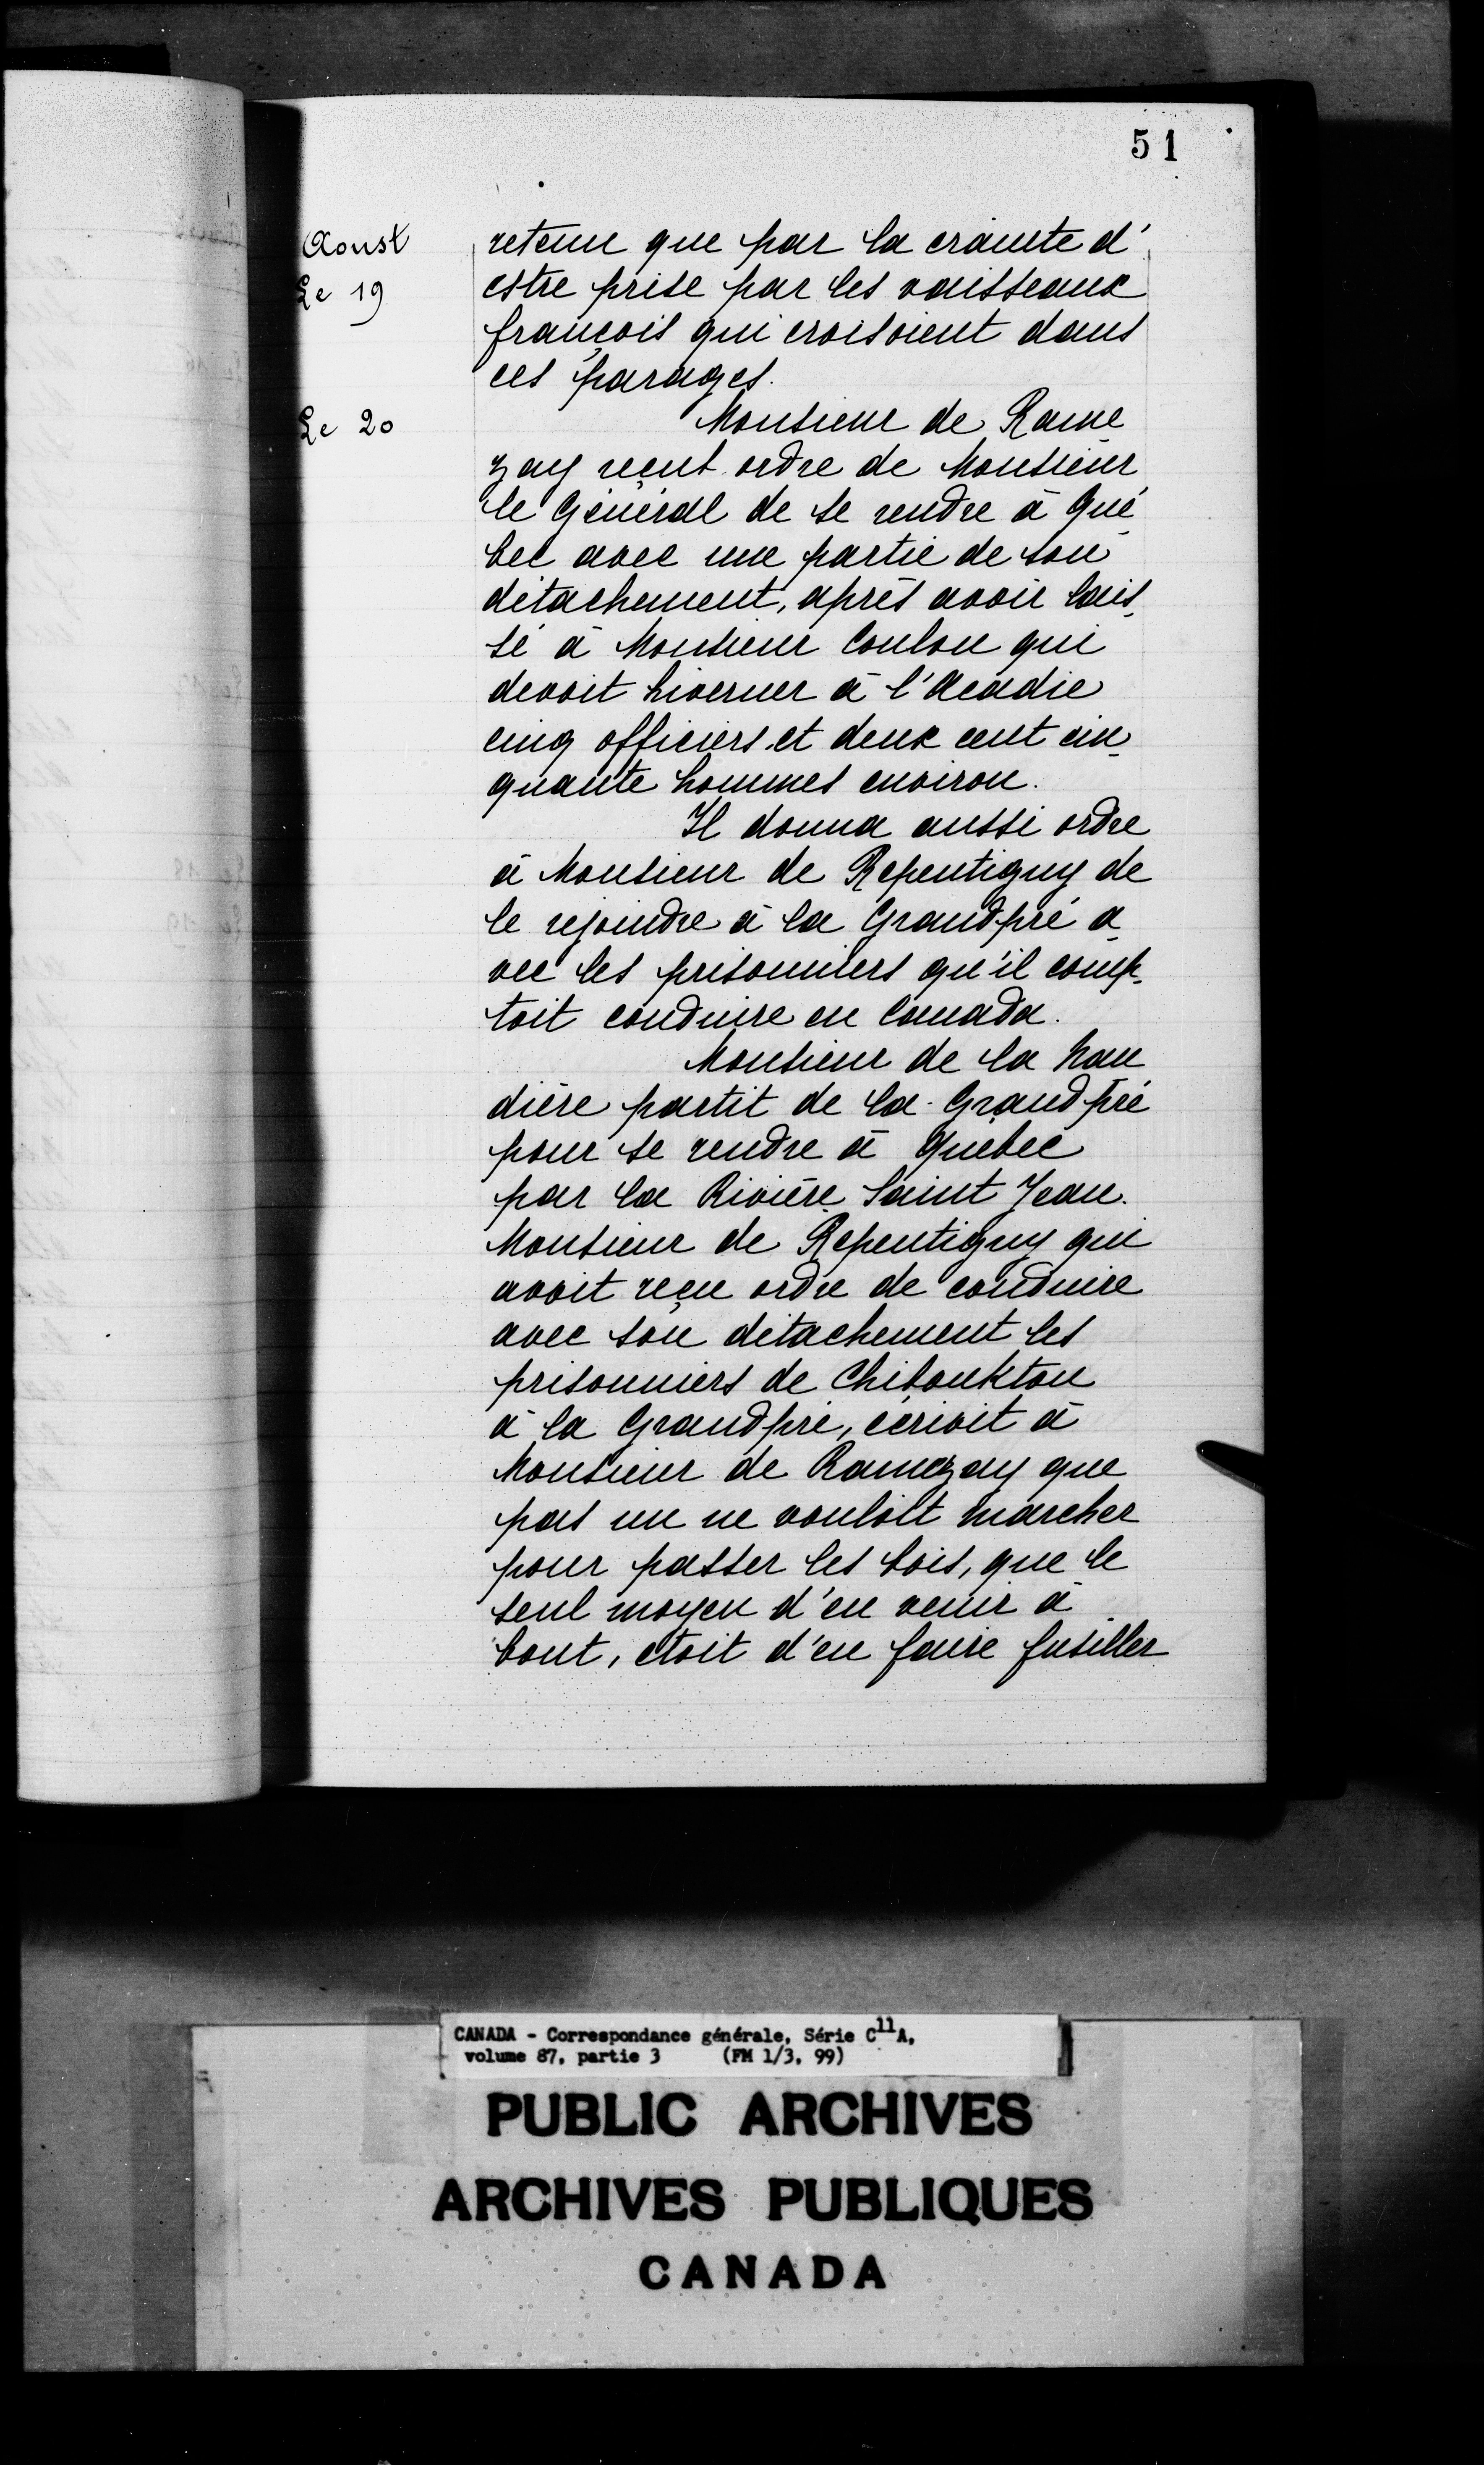 51
Aoust
Le 19
retenu que par la crainte d'
estre prise par les vaisseaux
françois qui croisoient dans
ces parages.
Le 20
Monsieur de Rame
zay reçut ordre de Monsieur
le Général de se rendre à Qué
bec avec une partie de son
détachement, après avoir lais
sé à Monsieur Coulon qui
devoit hiverner à l'Acadie
cinq officiers et deux cent cin
quante hommes environ.
Il donna aussi ordre
à Monsieur de Repentigny de
le rejoindre à la Grandpré a
vec les prisonniers qu'il comp
toit conduire en Canada.
Monsieur de la hau
dière partit de la Grandpré
pour se rendre à Quebec
par la Rivière Saint Jean.
Monsieur de Repentigny qui
avoit reçu ordre de conduire
avec son détachement les
prisonniers de Chibouktou
à la Grandpré, écrivit à
Monsieur de Ramezay que
pas un ne vouloit marcher
pour passer les bois, que le
seul moyen d'en venir à
bout, étoit d'en faire fusiller
CANADA - Correspondance générale, Série C11A,
volume 87, partie 3 (FM 1/3, 99)
PUBLIC ARCHIVES
ARCHIVES PUBLIQUES
CANADA